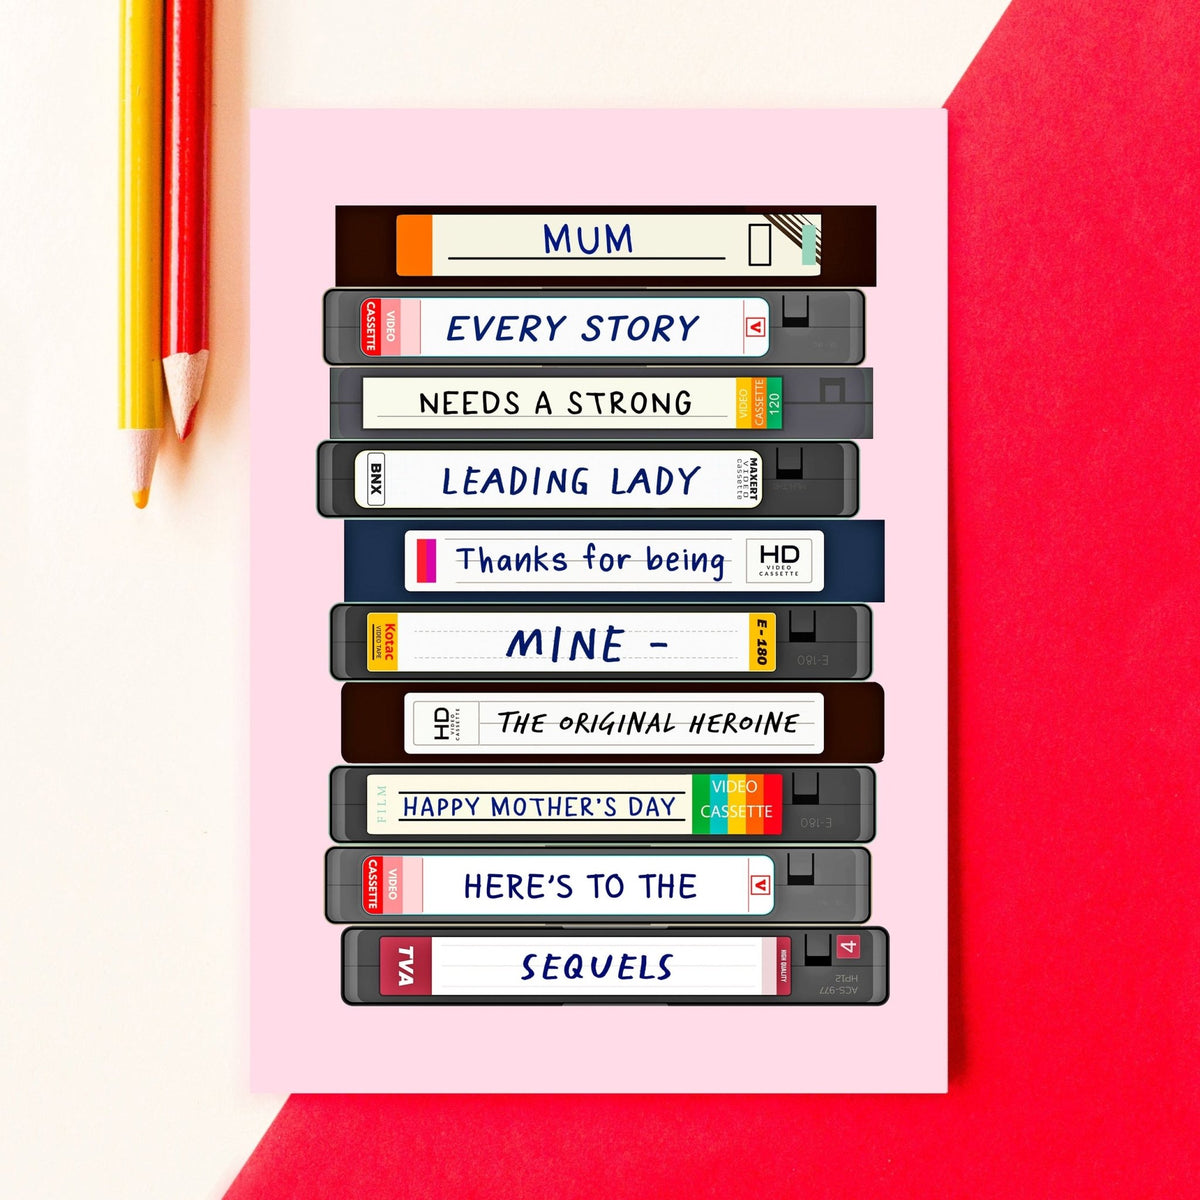 MUM
CASSETTE
VIDEO
EVERY STORY
NEEDS A STRONG
VIDEO
CASSETTE
120
BNX
LEADING LADY
MAXERT
VIDEO
cassette
Thanks for being
HD
VIDEO
CASSETTE
Kotac
VIDEO TAPE
MINE -
E-180
E-180
HD
VIDEO
CASSETTE
THE ORIGINAL HEROINE
FILM
HAPPY MOTHER'S DAY
VIDEO
CASSETTE
E-180
CASSETTE
VIDEO
HERE'S TO THE
TVA
SEQUELS
HIGH QUALITY
4
HP12
ACS-977